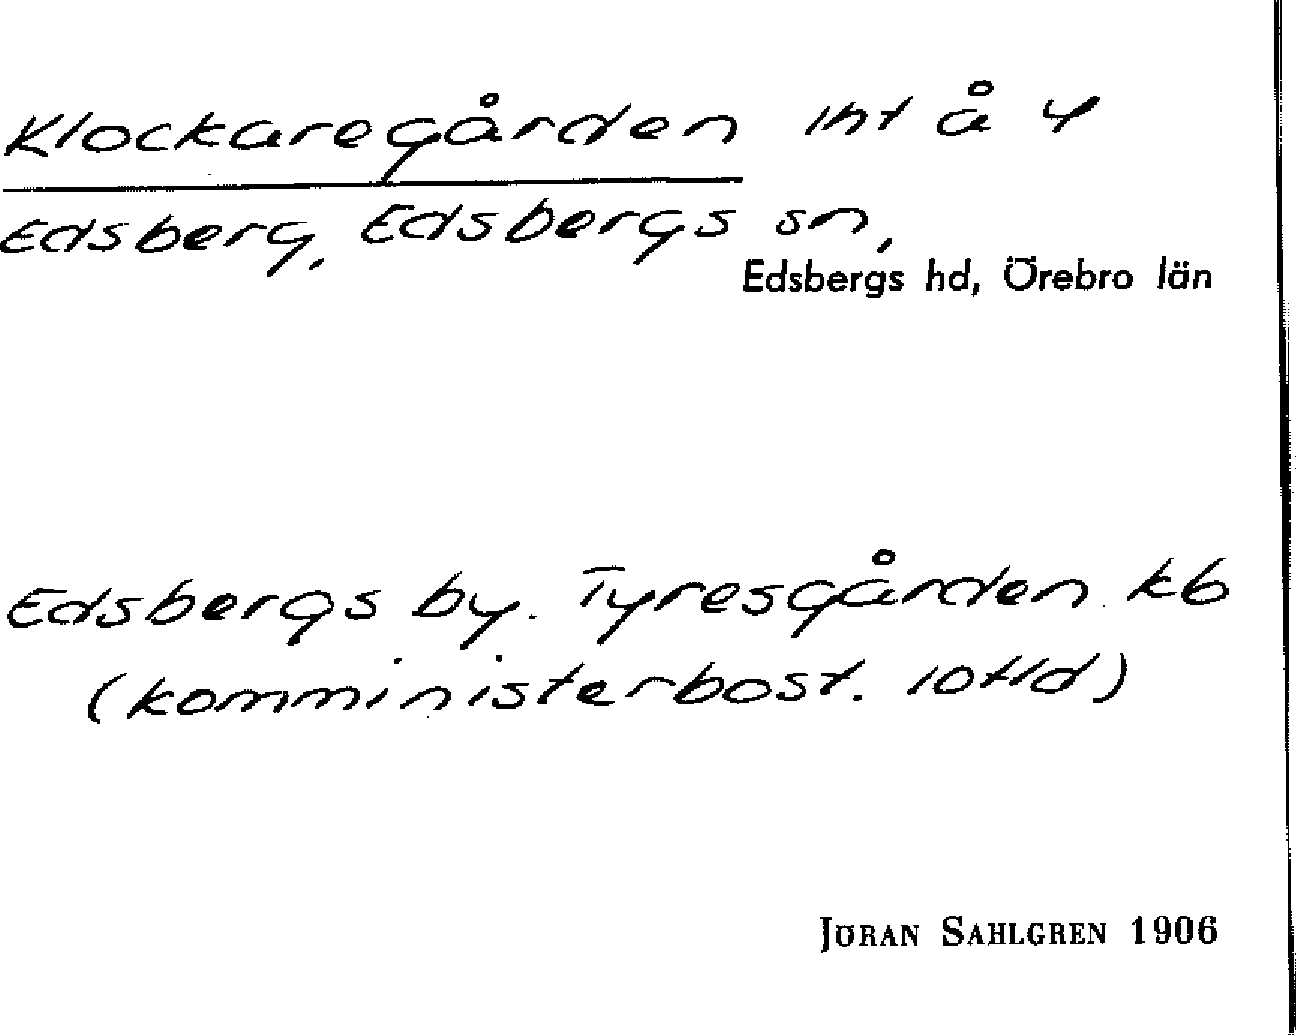 Klockaregården int å 4
Edsberg, Edsbergs sn,
Edsbergs hd, Örebro län
Edsbergs by. Tyresgården kb
(komministerbost.
JÖRAN SAHLGREN 1906